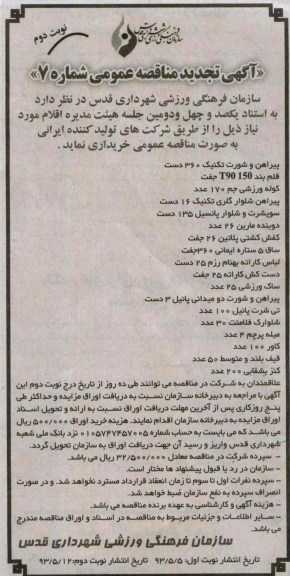 نوبت دوم
«آگهی تجدید مناقصه عمومی شماره ۷»
سازمان فرهنگی ورزشی شهرداری قدس در نظر دارد
به استناد یکصد و چهل ودومین جلسه هیئت مدیره اقلام مورد
نیاز ذیل را از طریق شرکت های تولید کننده ایرانی
به صورت مناقصه عمومی خریداری نماید .
پیراهن و شورت تکنیک ۳۶۰ دست
قلم بند T90 150 جفت
کوله ورزشی جم ۱۷۰ عدد
پیراهن شلوار گلری تکنیک ۱۶ دست
سویشرت و شلوار پانسیل ۱۳۵ دست
دوبنده مارین ۲۶ عدد
کفش کشتی پلاتین ۲۶ جفت
ساق ۵ ستاره ایمانی ۳۶۰جفت
لباس کاراته بهنام رزم ۲۵ دست
دست کش کاراته ۲۵ جفت
ساک ورزشی ۲۵ عدد
پیراهن و شورت دو میدانی پانیل ۳ دست
تی شرت پانیل ۱۰۰ عدد
شلوارک فلامنت ۳۰ عدد
میله پرچم ۴ عدد
کاور ۱۰۰ عدد
قیف بلند و متوسط ۵۰ عدد
کنز بشقابی ۲۰۰ عدد
علاقمندان به شرکت در مناقصه می توانند طی ده روز از تاریخ درج نوبت دوم این
آگهی با مراجعه به دبیرخانه سازمان نسبت به دریافت اوراق مزایده و حداکثر طی
پنج روزکاری پس از آخرین مهلت دریافت اوراق نسبت به ارائه و تحویل اسناد
اوراق مزایده به دبیرخانه سازمان اقدام نمایند. هزینه خرید اوراق ۵۰۰/۰۰۰ ریال
می باشد که می بایست به حساب شماره ۰۱۰۵۷۴۷۴۵۷۰۰۵ نزد بانک ملی شعبه
شهرداری قدس واریز و رسید آن جهت دریافت اوراق به سازمان تحویل گردد.
- سپرده شرکت در مناقصه معادل ۳۲/۵۰۰/۰۰۰ ریال می باشد.
- سازمان در رد یا قبول پیشنهاد ها مختار است.
- سپرده نفرات اول تا سوم تا زمان انعقاد قرارداد مسترد نخواهد شد. و در صورت
انصراف سپرده به نفع سازمان ضبط خواهد شد.
- هزینه آگهی و کارشناسی به عهده برنده مناقصه می باشد.
- سایر اطلاعات و جزئیات مربوط به مناقصه در اسناد و اوراق مناقصه مندرج
می باشد.
سازمان فرهنگی ورزشی شهرداری قدس
تاریخ انتشار نوبت اول: ۹۳/۵/۵ تاریخ انتشار نوبت دوم: ۹۳/۵/۱۲